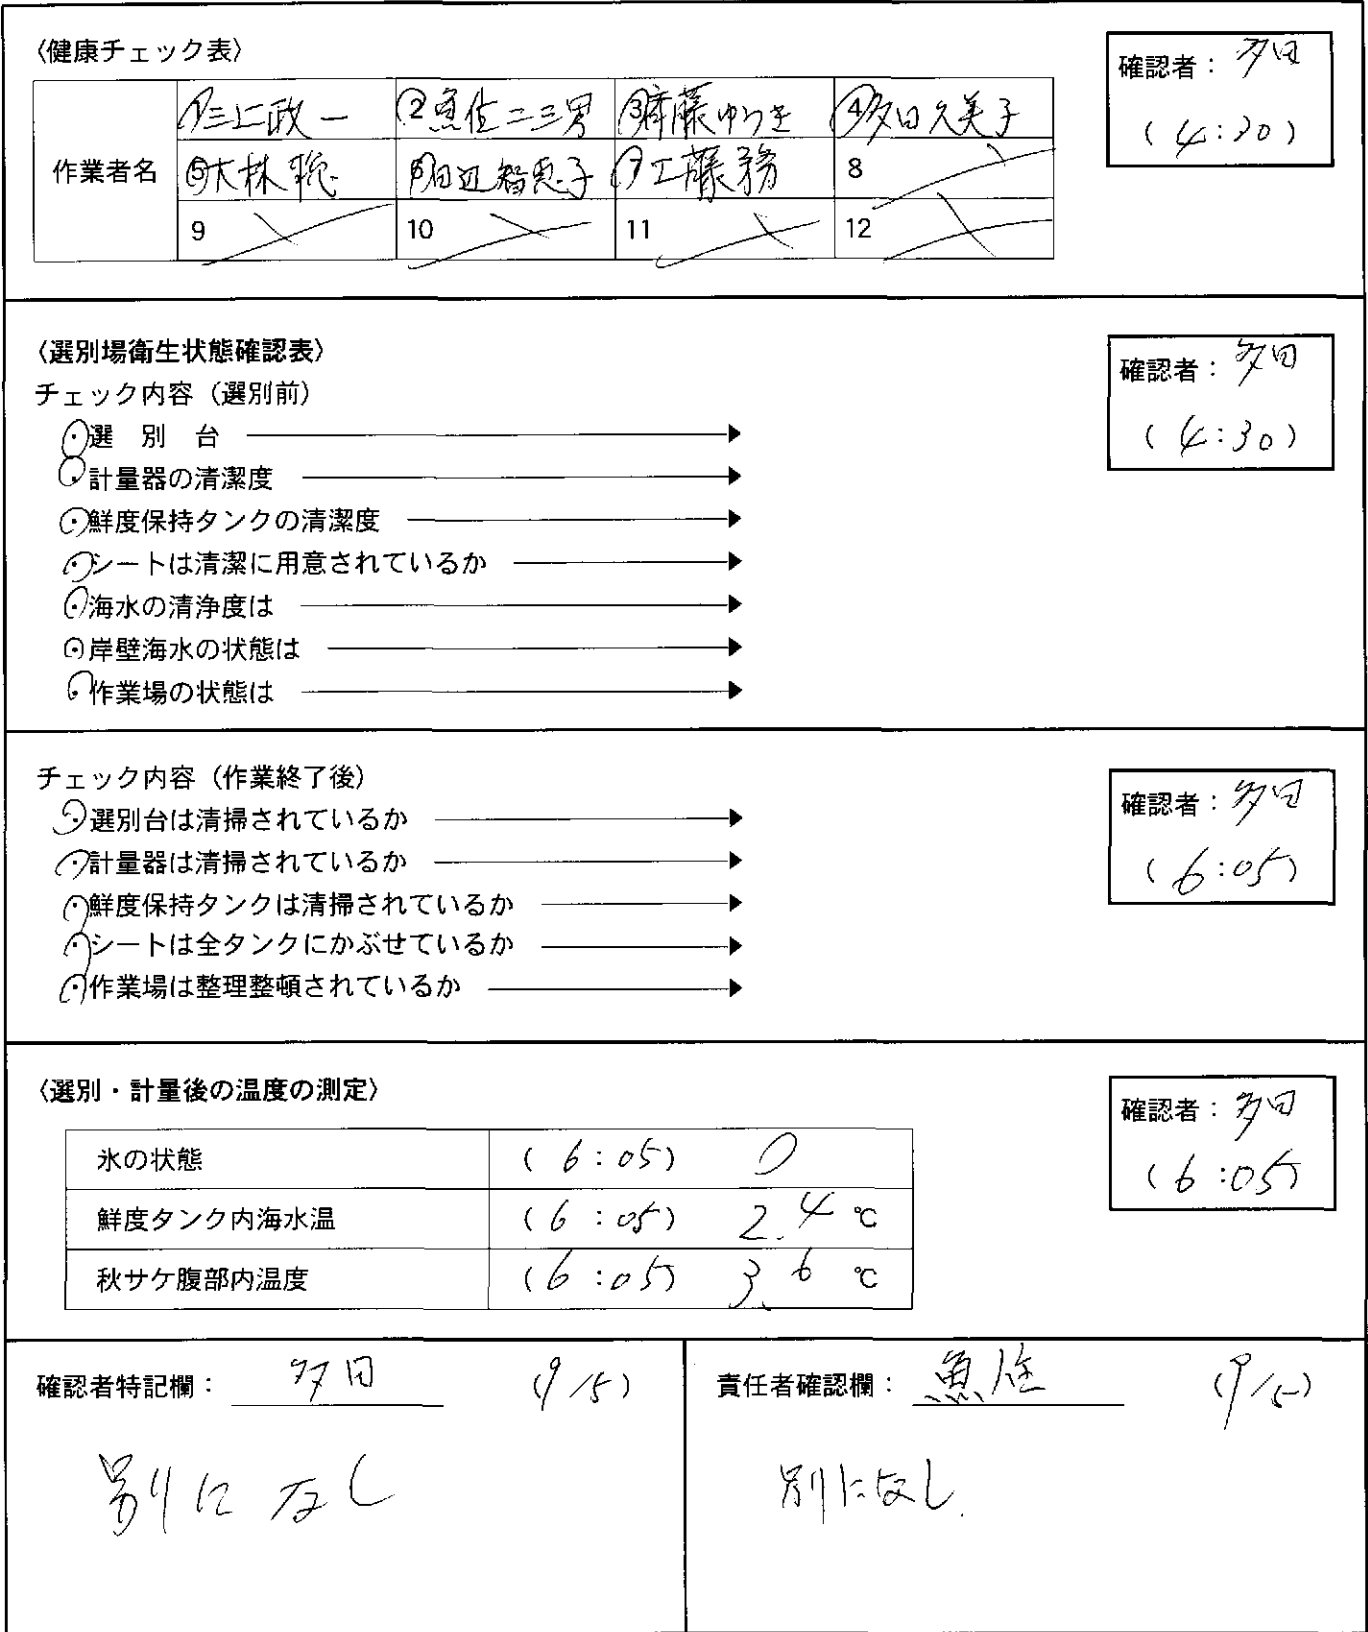 〈健康チェック表〉
確認者：多田
(4:30)
作業者名
①三上政一 ②魚住二三男 ③斉藤ゆうき ④多田久美子
⑤大林聡 ⑥田辺智恵子 ⑦工藤務 8
9 10 11 12
〈選別場衛生状態確認表〉
確認者：多田
(4:30)
チェック内容（選別前）
選 別 台
計量器の清潔度
鮮度保持タンクの清潔度
シートは清潔に用意されているか
海水の清浄度は
岸壁海水の状態は
作業場の状態は
チェック内容（作業終了後）
確認者：多田
(6:05)
選別台は清掃されているか
計量器は清掃されているか
鮮度保持タンクは清掃されているか
シートは全タンクにかぶせているか
作業場は整理整頓されているか
〈選別・計量後の温度の測定〉
確認者：多田
(6:05)
氷の状態 (6:05) ○
鮮度タンク内海水温 (6:05) 2.4 ℃
秋サケ腹部内温度 (6:05) 3.6 ℃
確認者特記欄： 多田 (9/5)
別になし
責任者確認欄： 魚住 (9/5)
別になし.